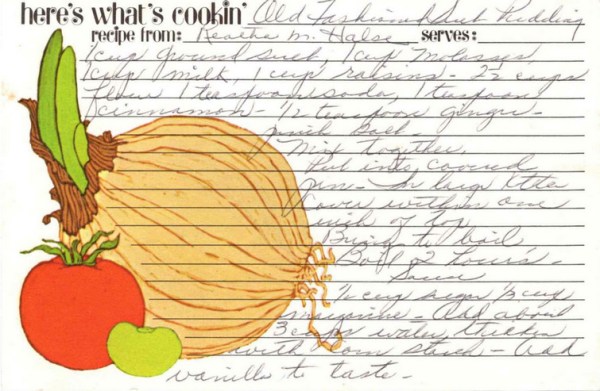 here's what's cookin' Old Fashioned Suet Pudding
recipe from: M. Halse serves:
1 cup ground suet, 1 cup molasses,
1 cup milk, 1 cup raisins - 2½ cups
flour 1 teaspoon soda, 1 teaspoon
cinnamon - ½ teaspoon ginger -
pinch salt -
Mix together.
Put into covered
pan - In large kettle
cover within one
inch of top
Bring to boil,
Boil 2 hours -
Sauce
½ cup sugar ½ cup
margarine - Add about
3 cups water, thicken
with corn starch - Add
vanilla to taste -